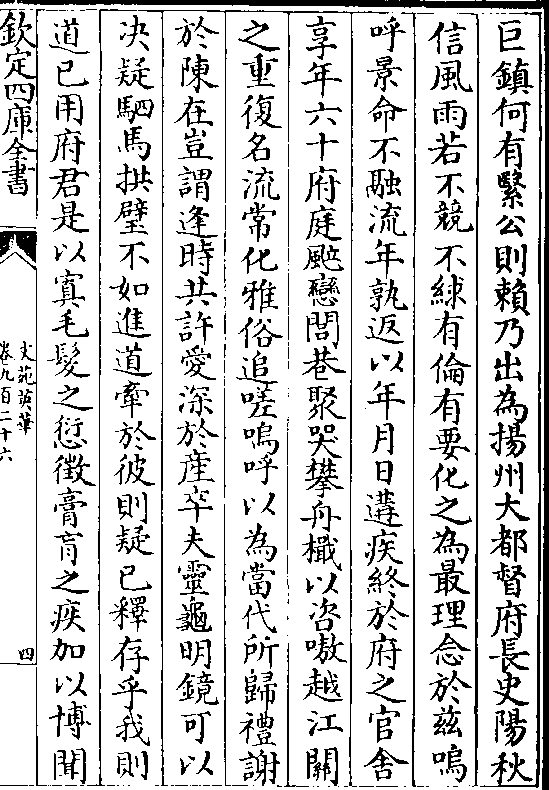 巨鎮何有繄公則賴乃出為揚州大都督府長史陽秋
信風雨若不競不絿有倫有要化之為最理念於兹嗚
呼景命不融流年孰返以年月日遘疾終於府之官舍
享年六十府庭颭戀閭巷聚哭攀舟檝以咨嗷越江關
之重復名流常化雅俗追嗟嗚呼以為當代所歸禮謝
於陳在豈謂逢時共許愛深於産卒夫靈龜明鏡可以
决疑駟馬拱璧不如進道牽於彼則疑已釋存乎我則
道已用府君是以寘毛髮之愆徵膏肓之疾加以博聞
欽定四庫全書
文苑英華
卷九百二十六
四